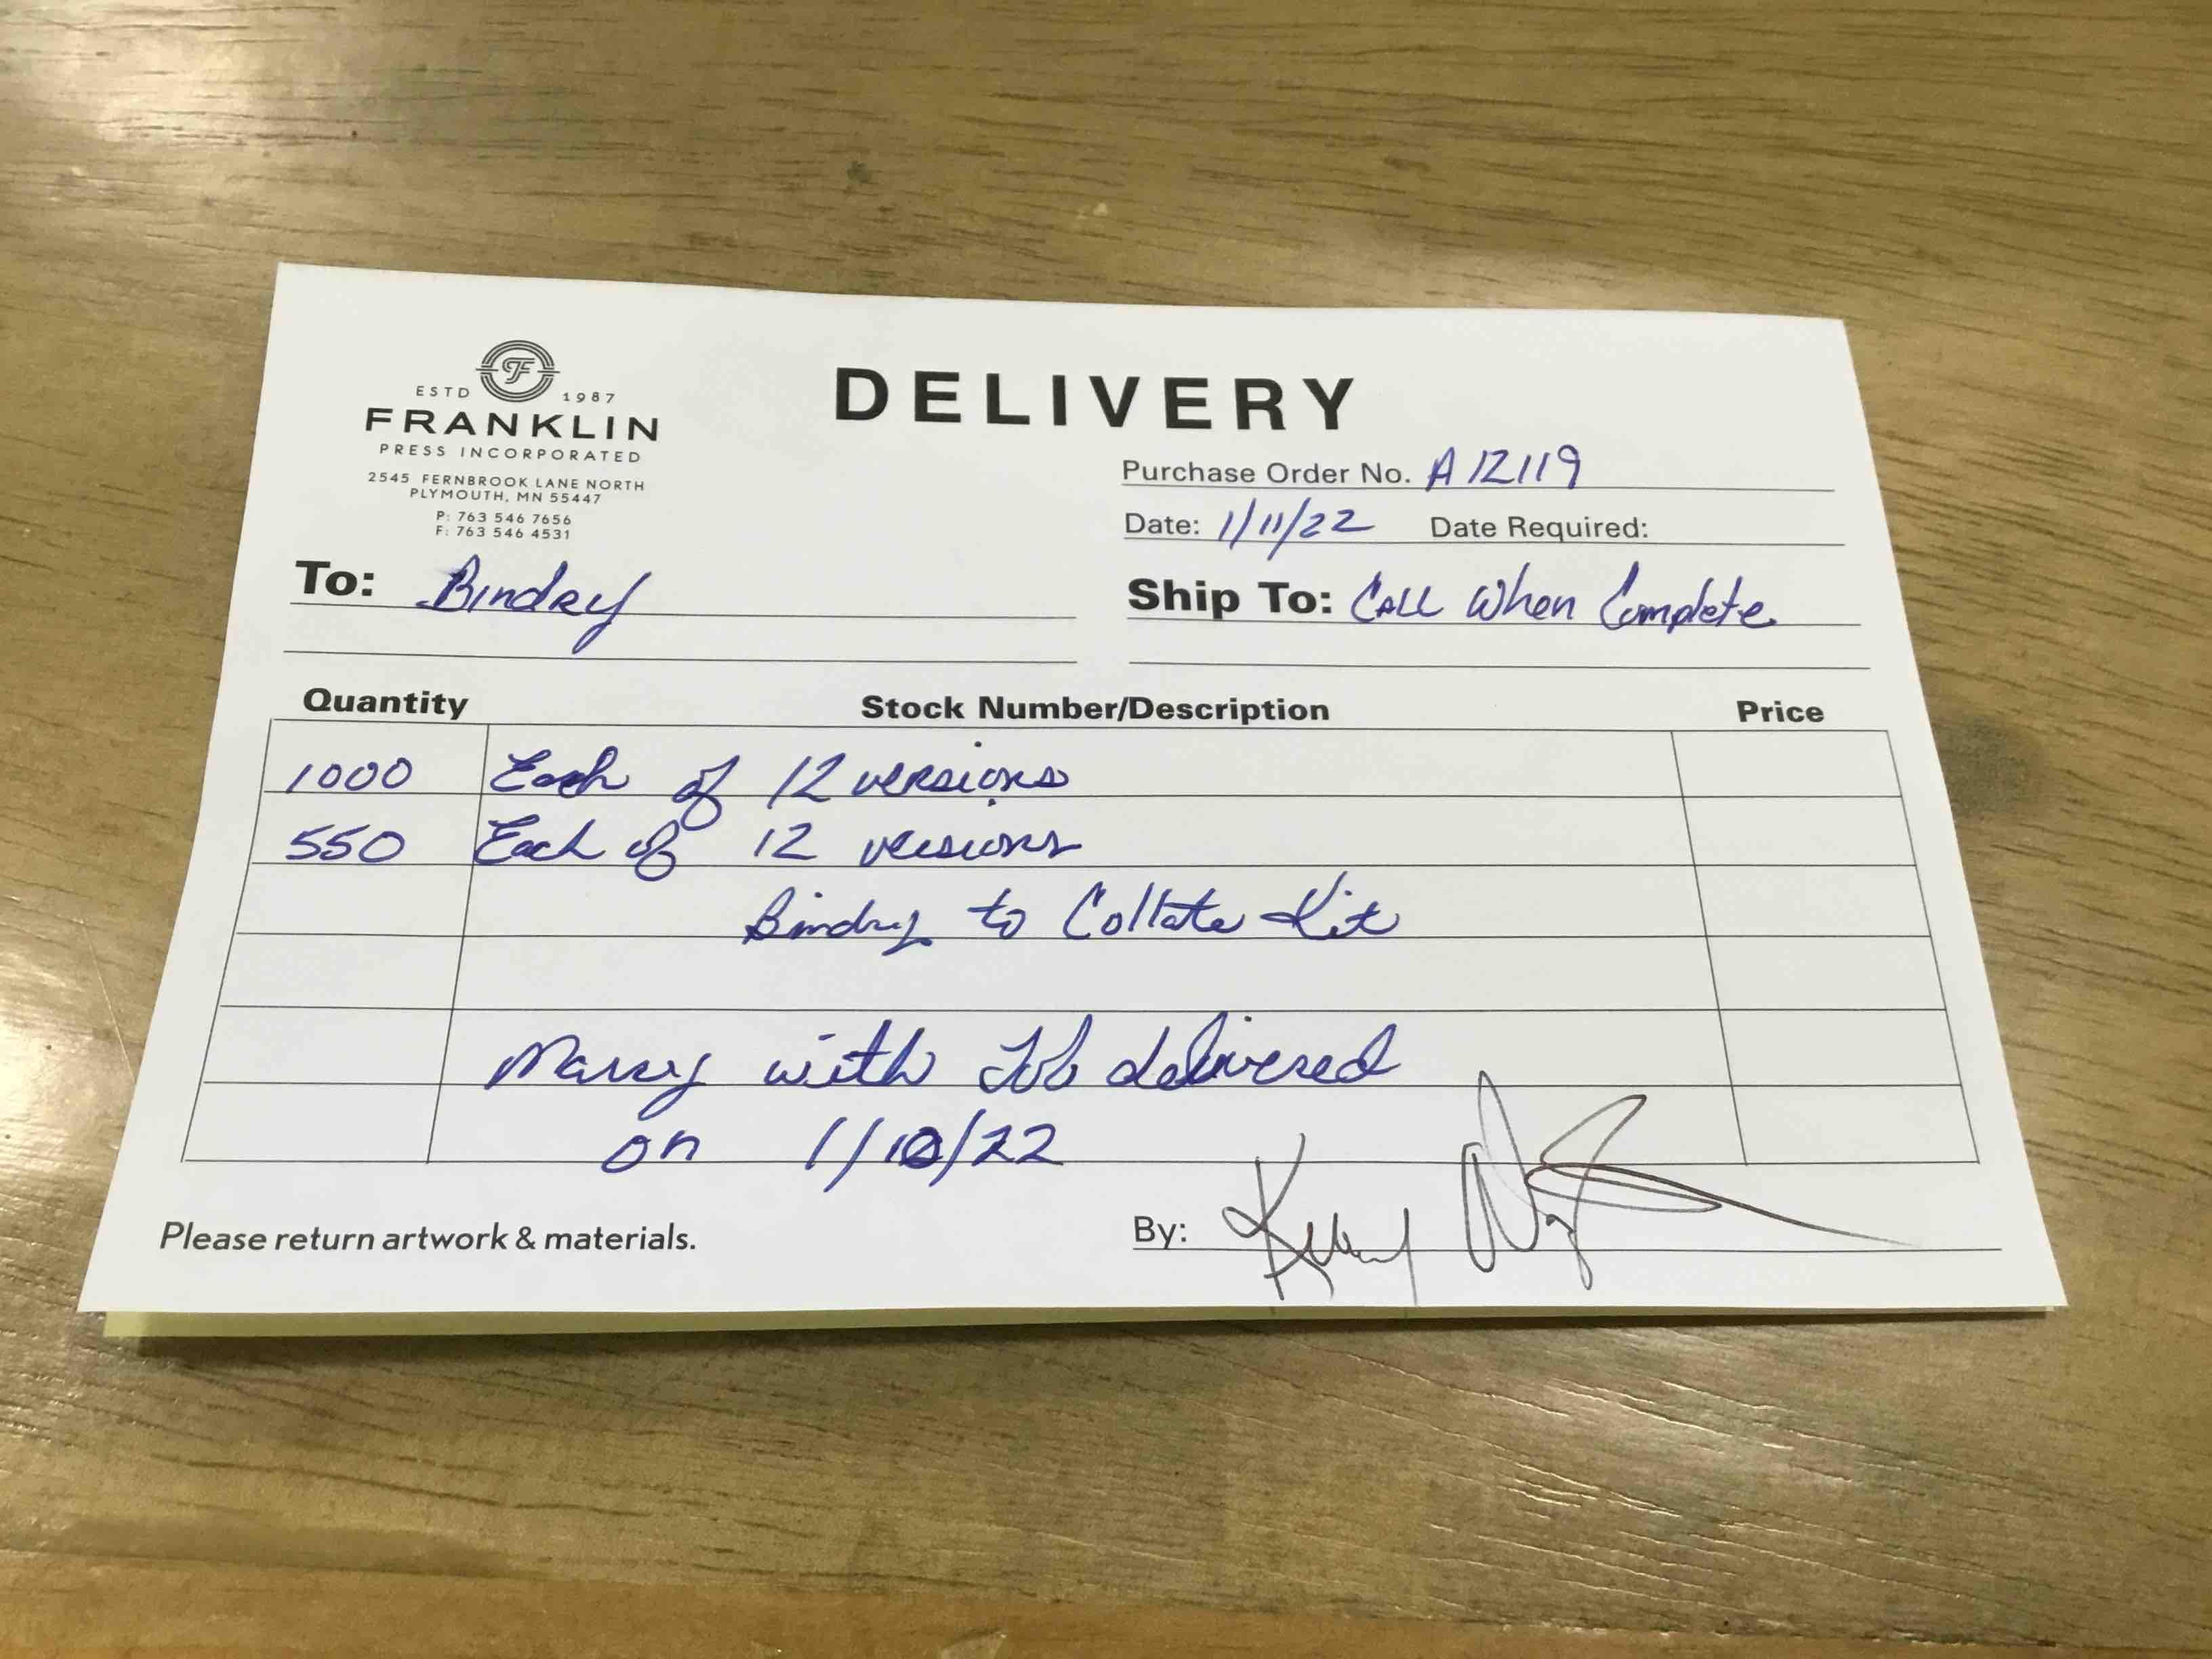 ESTD F 1987
FRANKLIN
PRESS INCORPORATED
2545 FERNBROOK LANE NORTH
PLYMOUTH, MN 55447
P: 763 546 7656
F: 763 546 4531
DELIVERY
Purchase Order No. A12119
Date: 1/11/22 Date Required:
To: Bindery
Ship To: Call When Complete
Quantity Stock Number/Description Price
1000 Each of 12 versions
550 Each of 12 versions
Bindry to Collate Kit
with Job delivered
on 1/10/22
Please return artwork & materials.
By: